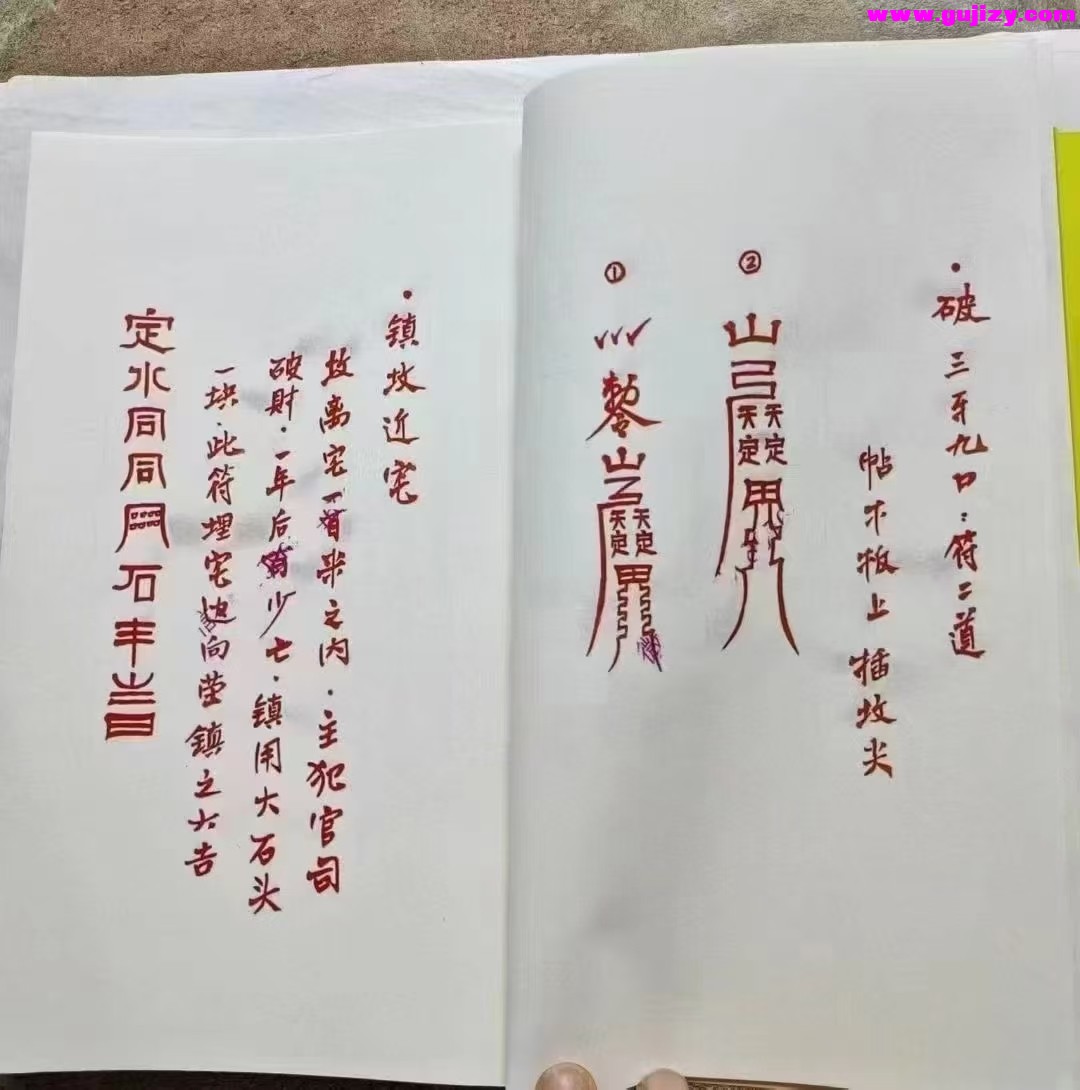 www.gujizy.com
·破三至九口：符二道
帖木板上插坟尖
②
山
天定 天定
①
敕令山
天定 天定
·镇坟近宅
坟离宅一百米之内·主犯官司
破财·一年后
少七·镇用大石头
一块·此符埋宅
向莹镇之大吉
定水同同
石